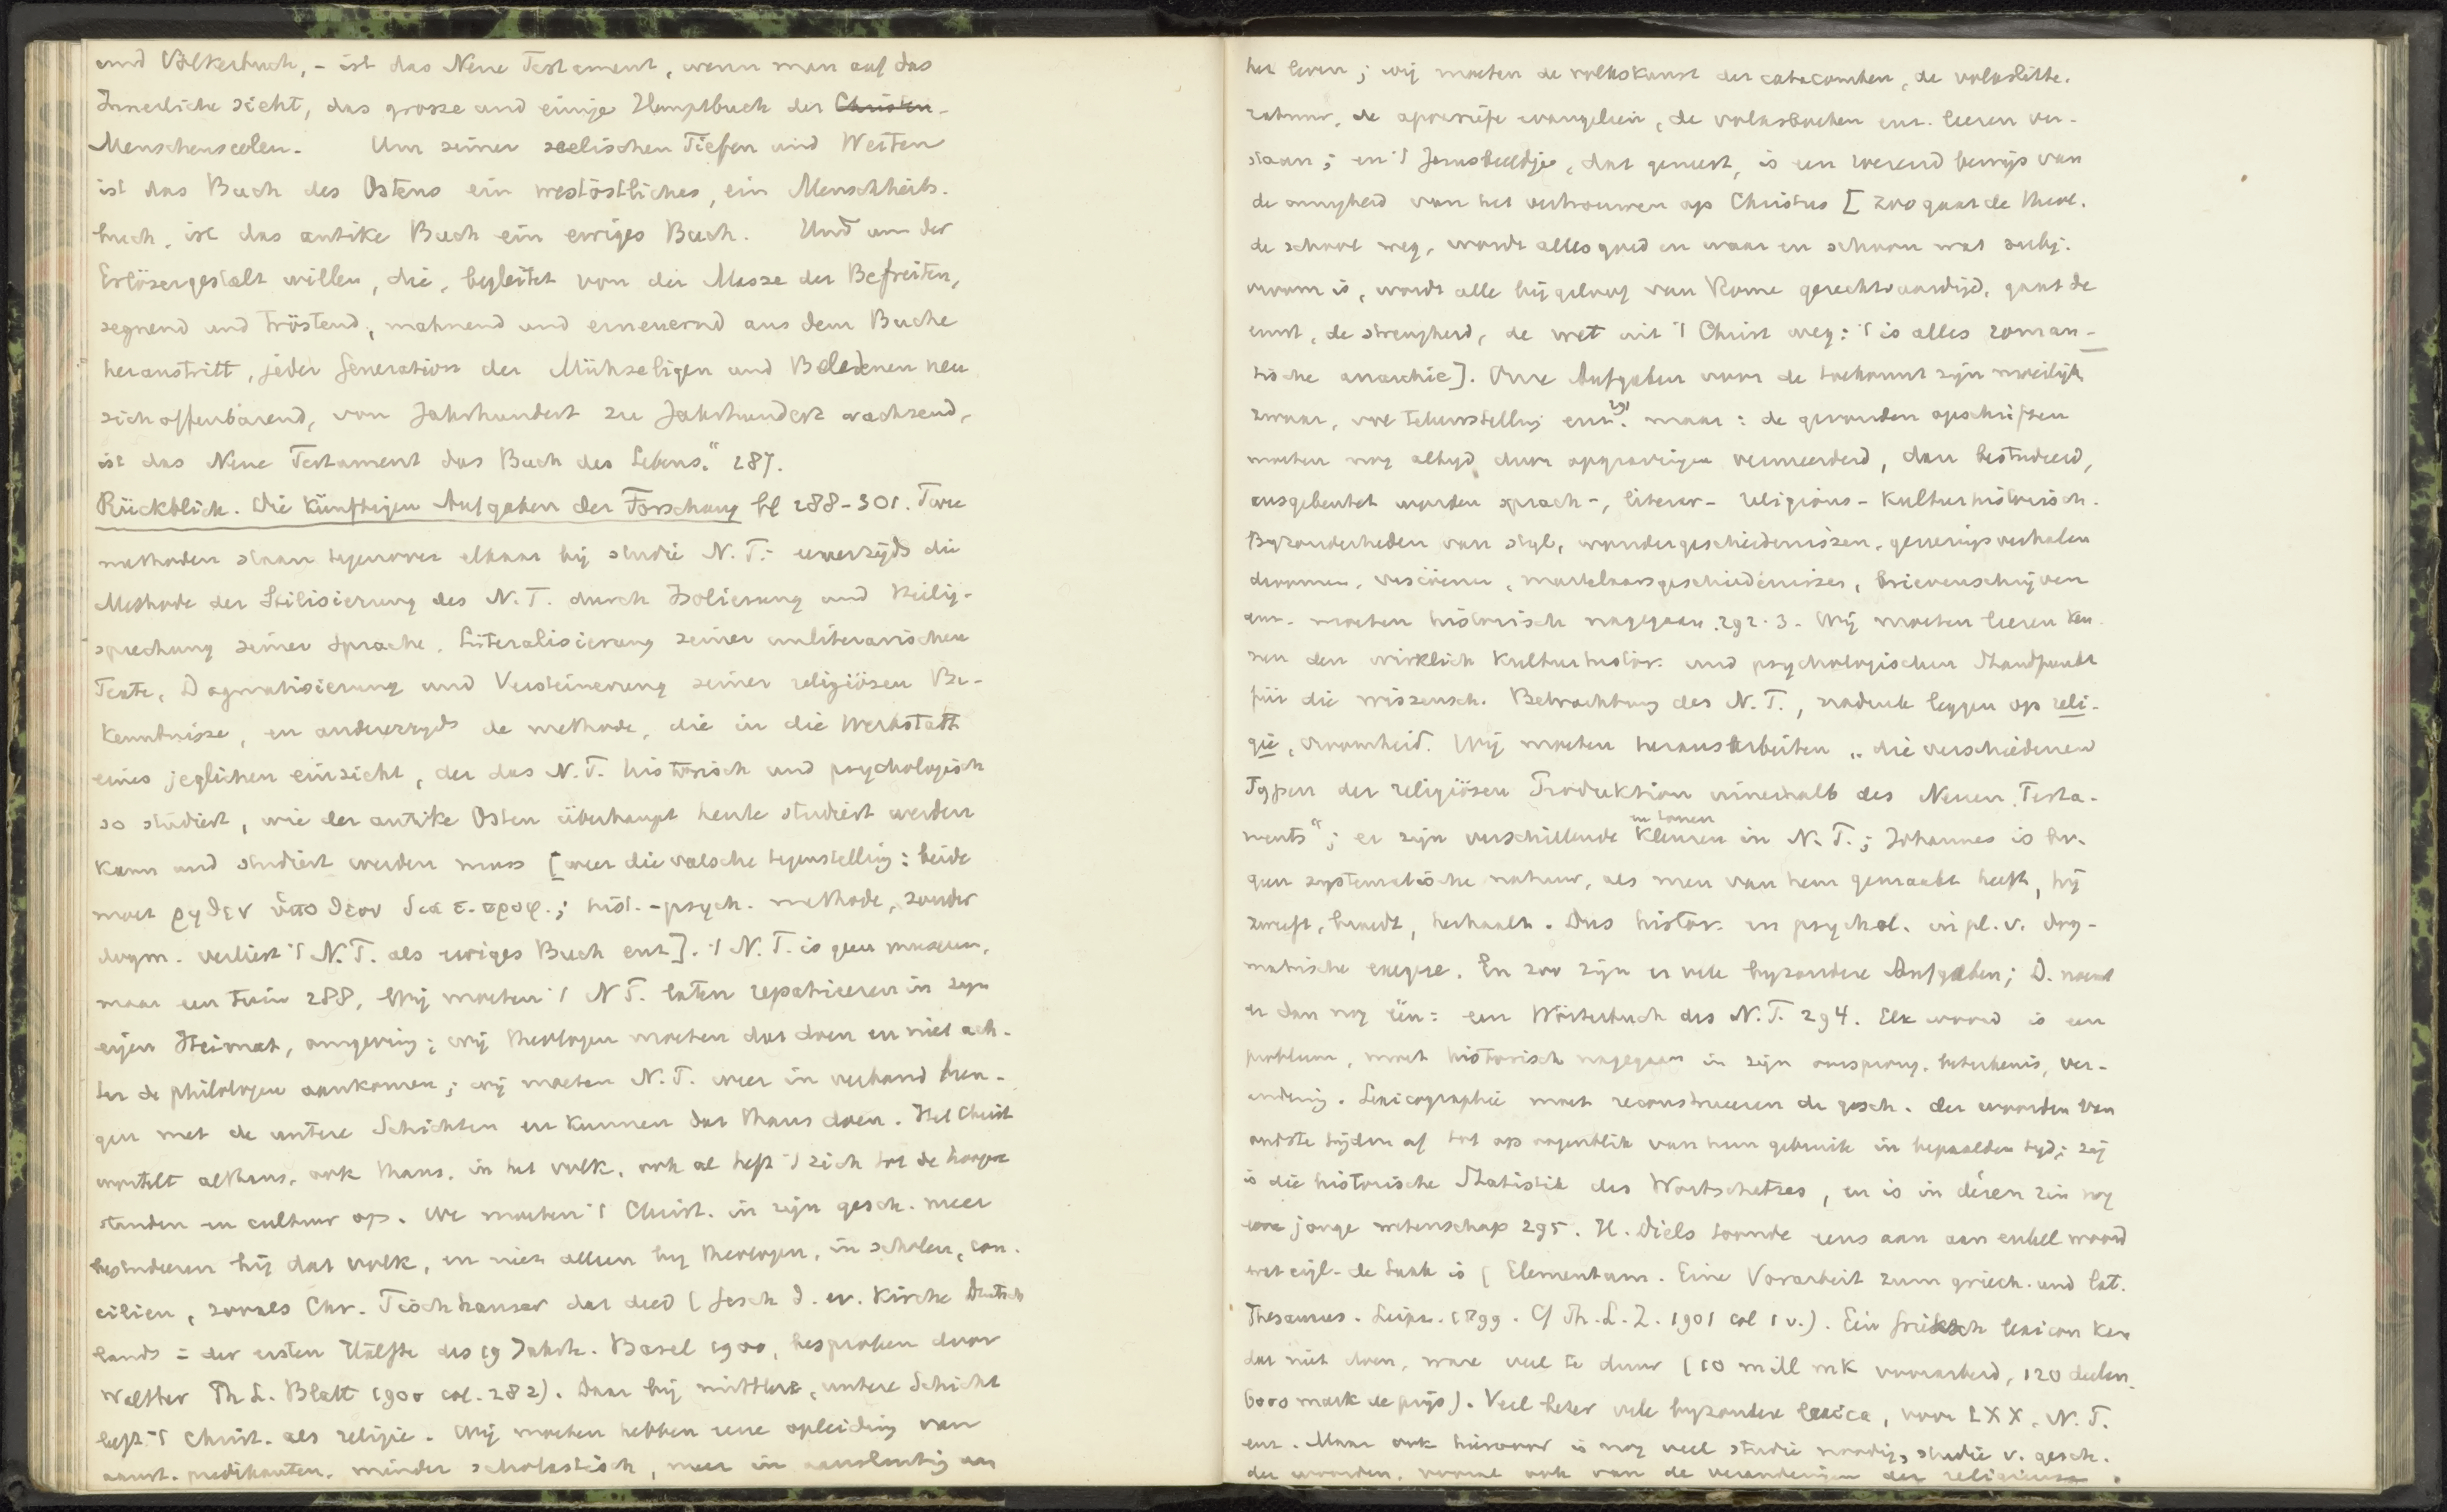 und Völkerbuch, - ist das Neue Testament, wenn man auf das
Innerliche sieht, das grosse und einige Hauptbuch der Christen-
Menschenseelen. Um seiner seelischen Tiefen und Weiten
ist das Buch des Ostens ein westöstliches, ein Menschheits-
buch, ist das antike Buch ein ewiges Buch. Und um der
Erlösergestalt willen, die, begleitet von der Masse der Befreiten,
segnend und tröstend, mahnend und erneuernd aus dem Buche
heraustritt, jeder Generation der Mühseligen und Beladenen neu
sich offenbarend, von Jahrhundert zu Jahrhundert wachsend,
ist das Neue Testament das Buch des Lebens." 287.
Rückblick. Die künftigen Aufgaben der Forschung bl 288-301. Twee
methoden staan tegenover elkaar bij studie N.T.: eenerzijds die
Methode der Stilisierung des N.T. durch Isolierung und Heilig-
sprechung seiner Sprache, Literalisierung seiner unliterarischen
Texte, Dogmatisierung und Versteinerung seiner religiösen Be-
kenntnisse, en anderezyds de methode, die in die Werkstatt
eines jeglichen einzieht, der das N.T. historisch und psychologisch
so studiert, wie der antike Osten überhaupt heute studiert werden
kann und studiert werden muss [weer die valsche tegenstelling: beide
moet ῥηθεν ὑπο θεου δια τ. προφ.; hist.-psych. methode, zonder
dogm. verliest 't N.T. als ewiges Buch enz]. 't N.T. is geen museum,
maar een tuin 288, Wij moeten 't N T. laten repatrieeren in zyn
eigen Heimat, omgeving; wij theologen moeten dat doen en niet ach-
ter de philologen aankomen; wij moeten N.T. weer in verband bren-
gen met de untere Schichten en kunnen dat thans doen. Het Christ
wortelt althans, ook thans, in het volk, ook al heft 't zich tot de hoogere
standen en cultuur op. We moeten 't Christ. in zijn gesch. meer
bestudeeren bij dat volk, en niet alleen by theologen, in scholen, con-
ciliën, zooals Chr. Tischhauser dat deed (Gesch d. ev. Kirche Deutsch
lands in der ersten Hälfte des 19 Jahrh. Basel 1900, besproken door
Walther Th L. Blatt 1900 col. 282). Daar bij mittlere, untere Schicht
leeft 't Christ. als religie. Wij moeten hebben eene opleiding van
aanst. predikanten, minder scholastisch, meer in aansluiting aan
het leven; wij moeten de volkskunst der catacomben, de volkslitte-
ratuur, de apocriefe evangeliën, de volksboeken enz. leeren ver-
staan; en 't Jesusbeeldje, dat geneest, is een roerend bewijs van
de innigheid van het vertrouwen op Christus [zoo gaat de theol.
de school weg, wordt alles goed en waar en schoon wat subj.
vroom is, wordt alle bijgeloof van Rome gerechtvaardigd, gaat de
ernst, de strengheid, de wet uit 't Christ weg: 't is alles roman-
tische anarchie]. Onze Aufgaben voor de toekomst zijn moeilijk
zwaar, vol teleurstelling enz. 291 maar: de gevonden opschriften
moeten nog altyd door opgravingen vermeerderd, dan bestudeerd,
ausgebeutet worden sprach-, literar- religions- kulturhistorisch.
Byzonderheden van styl, wondergeschiedenissen, genezingsverhalen
droomen, visioenen, martelaarsgeschiedenissen, brievenschrijven
enz. moeten historisch nagegaan. 292.3. Wij moeten leeren ken-
nen den wirklich kulturhistor. und psychologischen Standpunkt
für die wissensch. Betrachtung des N.T., nadruk leggen op reli-
gie, vroomheid. Wij moeten herausarbeiten „die verschiedenen
Typen der religiösen Produktion innerhalb des Neuen Testa-
ments"; er zijn verschillende kleuren en tonen in N.T.; Johannes is
geen systematische natuur, als men van hem gemaakt heeft, hij
zweeft, broedt, herhaalt. Dus histor. en psychol. in pl. v. dog-
matische exegese. En zoo zijn er vele byzondere Aufgaben; D. noemt
er dan nog één: een Wörterbuch des N.T. 294. Elk woord is een
probleem, moet historisch nagegaan in zijn oorsprong, beteekenis, ver-
andering. Lexicographie moet reconstrueeren de gesch. der woorden van
oudste tijden af tot op oogenblik van hun gebruik in bepaalden tyd; zij
is die historische Statistik des Wortschatzes, en is in dézen zin nog
eene jonge wetenschap 295. H. Diels toonde eens aan aan enkel woord
wat eigl. de taak is (Elementum. Eine Vorarbeit zum griech. und lat.
Thesaurus. Leipz. 1899. Cf Th.L.Z. 1901 col 1 v.). Een Grieksch lexicon kan
dat niet doen, ware veel te duur (10 mill mk voorarbeid, 120 deelen,
6000 mark de prijs). Veel beter vele byzondere lexica, voor LXX, N.T.
enz. Maar ook hiervoor is nog veel studie noodig, studie v. gesch.
der woorden, vooral ook van de veranderingen der religieuse